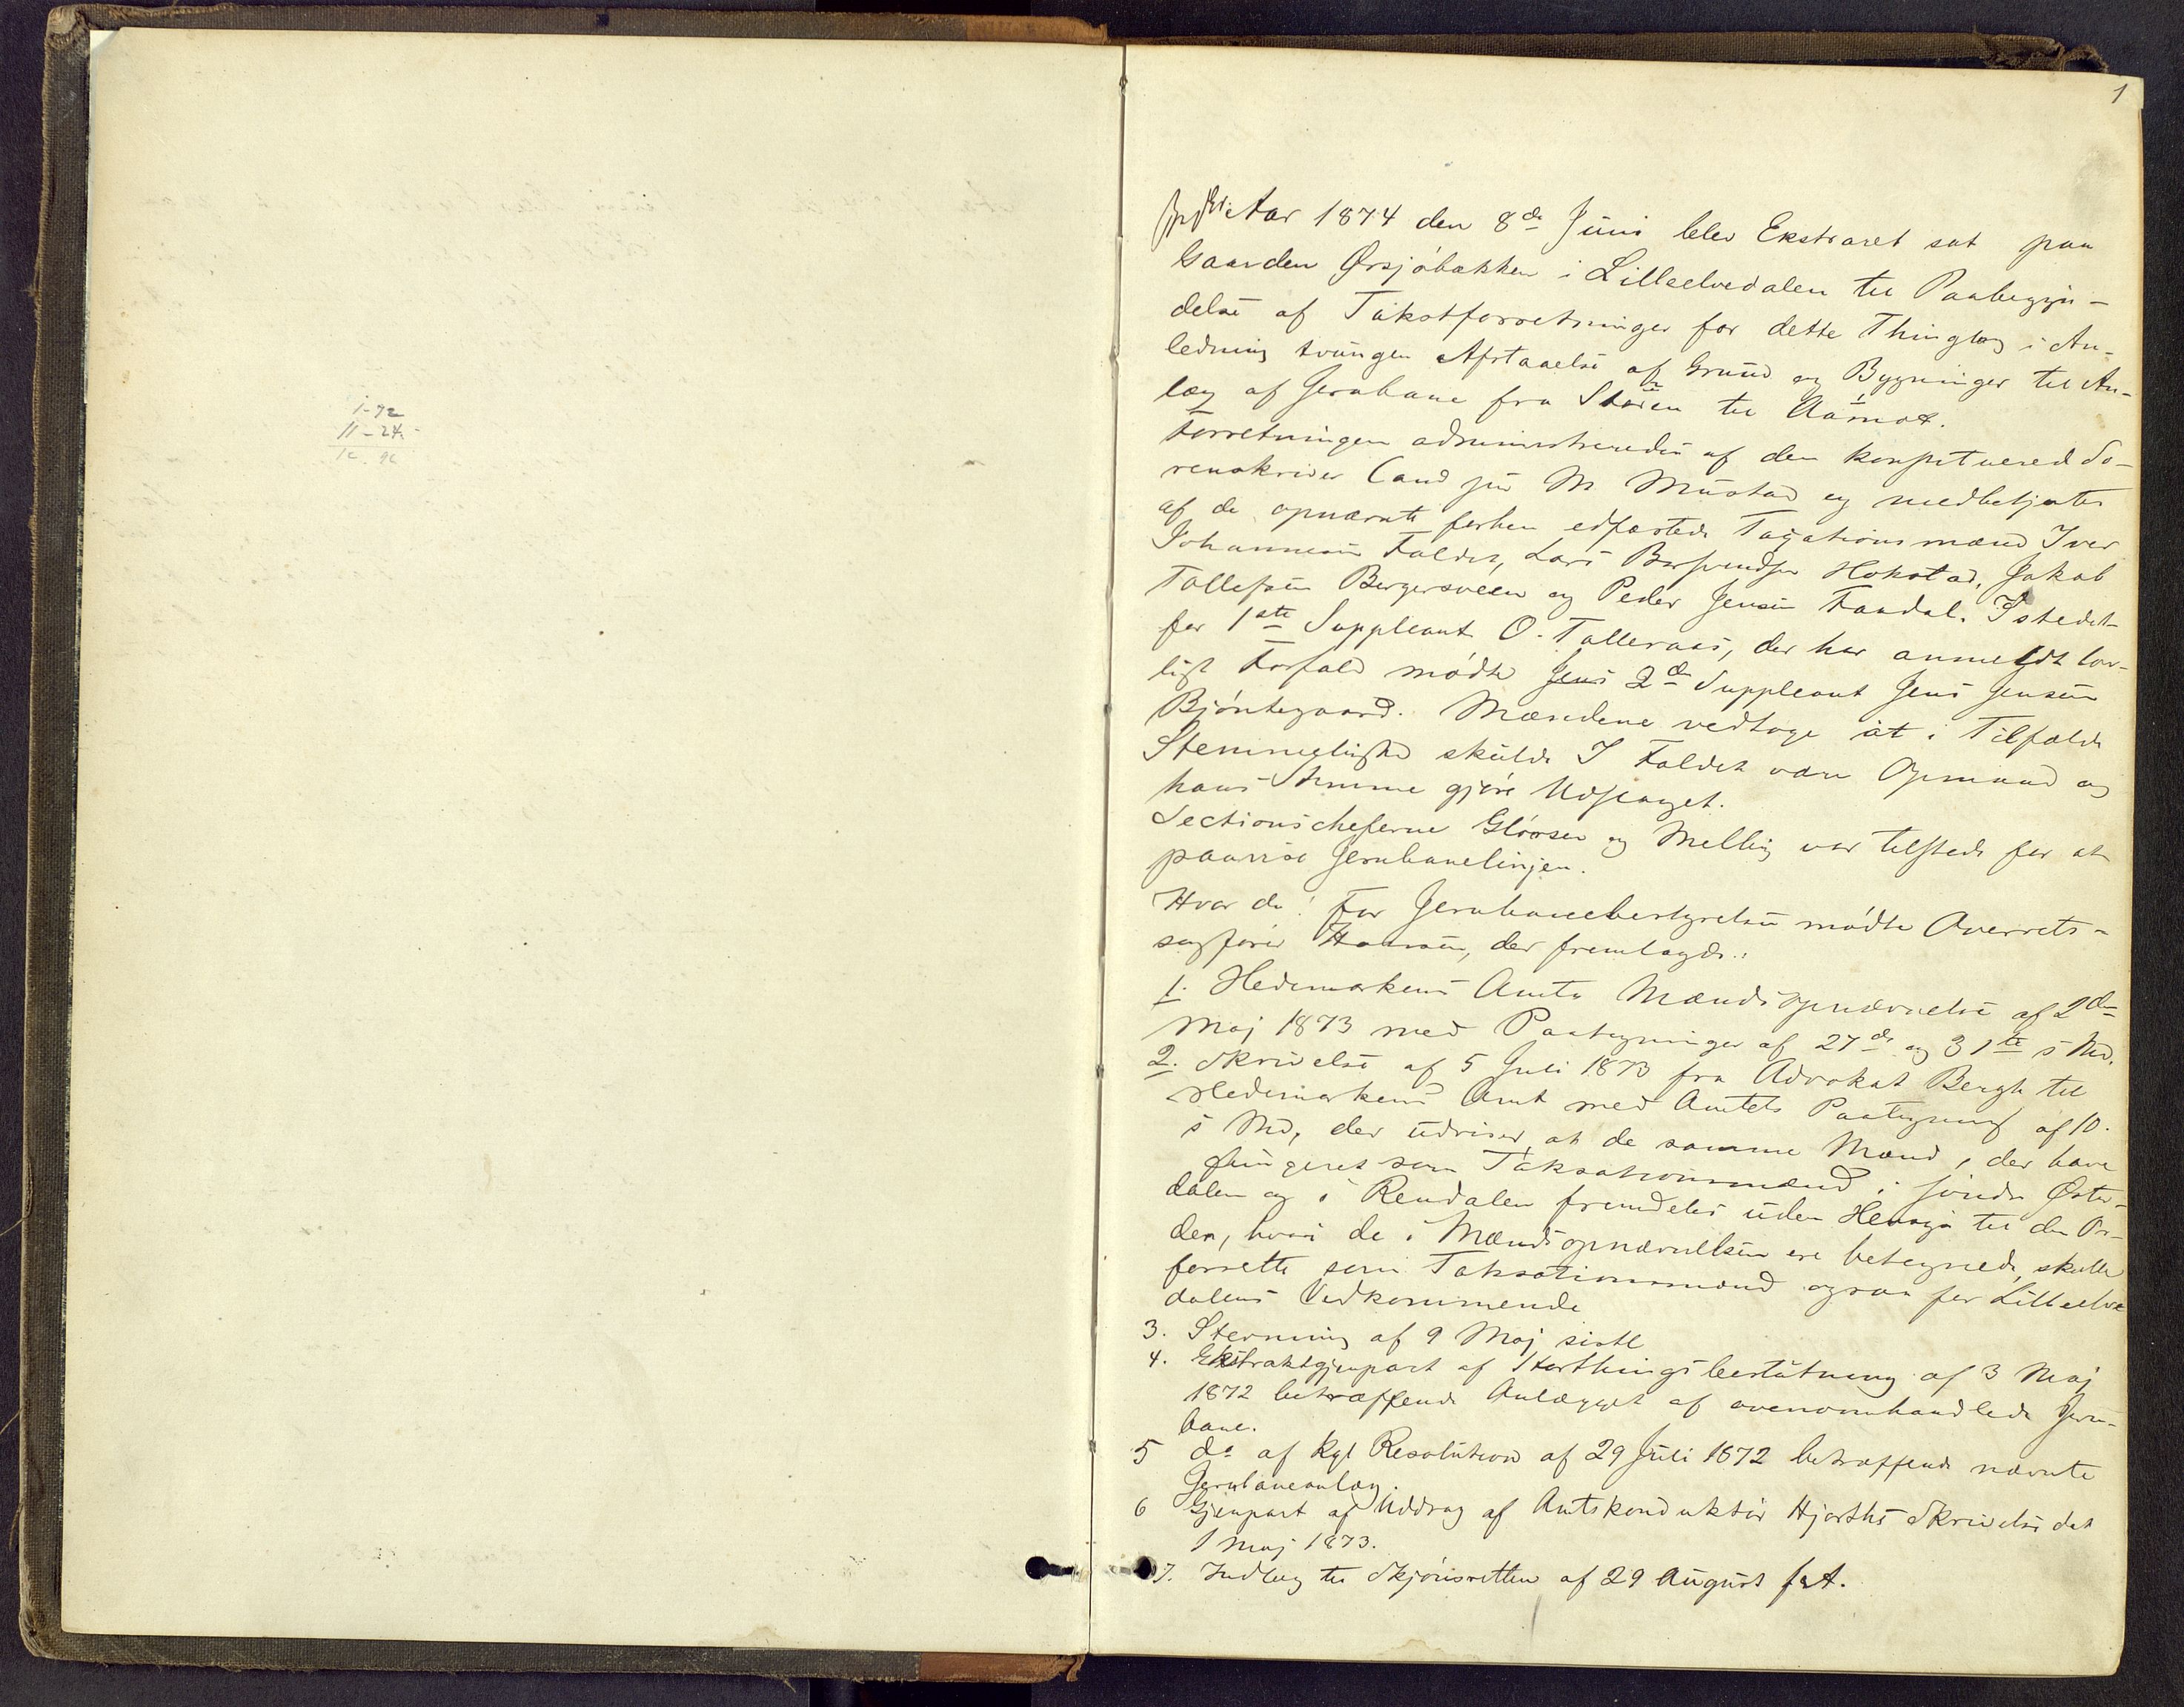 1-72
11-24
1
Aar 1874 den 8de Juni blev Ekstraret sat paa
Gaarden Ørsjøbakken i Lilleelvedalen til Paabegyn-
delse af Takstforretninger for dette Thinglag i An-
ledning tvungen Afstaaelse af Grund og Bygninger til An-
læg af Jernbane fra Støren til Aamot.
Forretningen administreredes af den konstituered So-
renskriver Cand jur M Mustad og medbetjentes
af de opnævnte forhen edfæstede Taxationsmænd Iver
Johannesen Faldet, Lars Bersvendsen Hokstad, Jakob
Tollefsen Bergersveen og Peder Jensen Fandal. Istedet
for 1ste Suppleant O. Talleraas, der har anmeldt lov-
ligt Forfald mødte Jens 2den Suppleant Jens Jensen
Bjøntegaard. Mændene vedtoge at i Tilfælde
Stemmelighed skulde I Faldet være Opmand og
hans Stemme gjøre Udslaget.
Sectionscheferne Gløersen og Melbÿ var tilstede for at
paavise Jernbanelinjen.
Hvor da: For Jernbanebestyrelsen mødte Overrets-
sagfører Hansen, der fremlagde:
1. Hedemarkens Amts Mændsopnævnelse af 2den
Maj 1873 med Paategninger af 27de og 31te s Md.
2. Skrivelse af 5 Juli 1873 fra Advokat Bergh til
Hedemarkens Amt med Amtets Paategning af 10.
s Md, der udviser, at de samme Mænd, der have
fungeret som Taksationsmænd i søndre Øster-
dalen og i Rendalen fremdeles uden Hensyn til den Or-
den, hvori de i Mændsopnævnelsen ere betegnede, skulle
forrette som Taksationsmænd ogsaa for Lilleelve
dalens Vedkommende
3. Stevning af 9 Maj sistl
4. Ekstraktgjenpart af Storthingsbeslutning af 3 Maj
1872 betræffende Anlægget af ovenomhandlede Jern-
bane.
5 do af Kgl Resolution af 29 Juli 1872 betræffende nævnte
Jernbaneanlæg.
6 Gjenpart af Uddrag af Amtskonduktør Hjorths Skrivelse dat
1 Maj 1873.
7. Indlæg til Skjønsretten af 29 August f A.